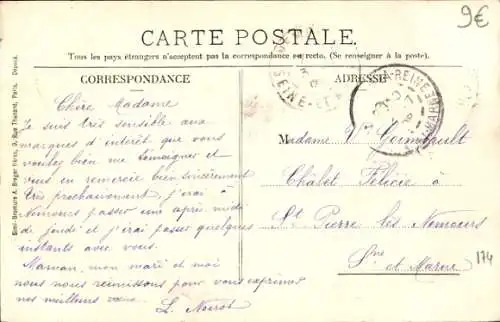 9€
CARTE POSTALE.
Tous les pays étrangers n'acceptent pas la correspondance au recto. (Se renseigner à la poste).
CORRESPONDANCE
ADRESSE
Chère Madame
Je suis très sensible aux
marques d'interêt que vous
voulez bien me temoigner et
vous en remercie bien sincèrement
très prochainement, j'irai à
Nemours passer une après midi
de jeudi et j'irai passer quelques
instants avec vous.
Maman, mon mari et moi
nous nous reunissons pour vous exprimer
nos meilleurs vœux.
L. Noirot
Madame Vve
Châlet Félicie à
St Pierre lès Nemours
Sne et Marne
174
SEINE-ET-
Déposé.